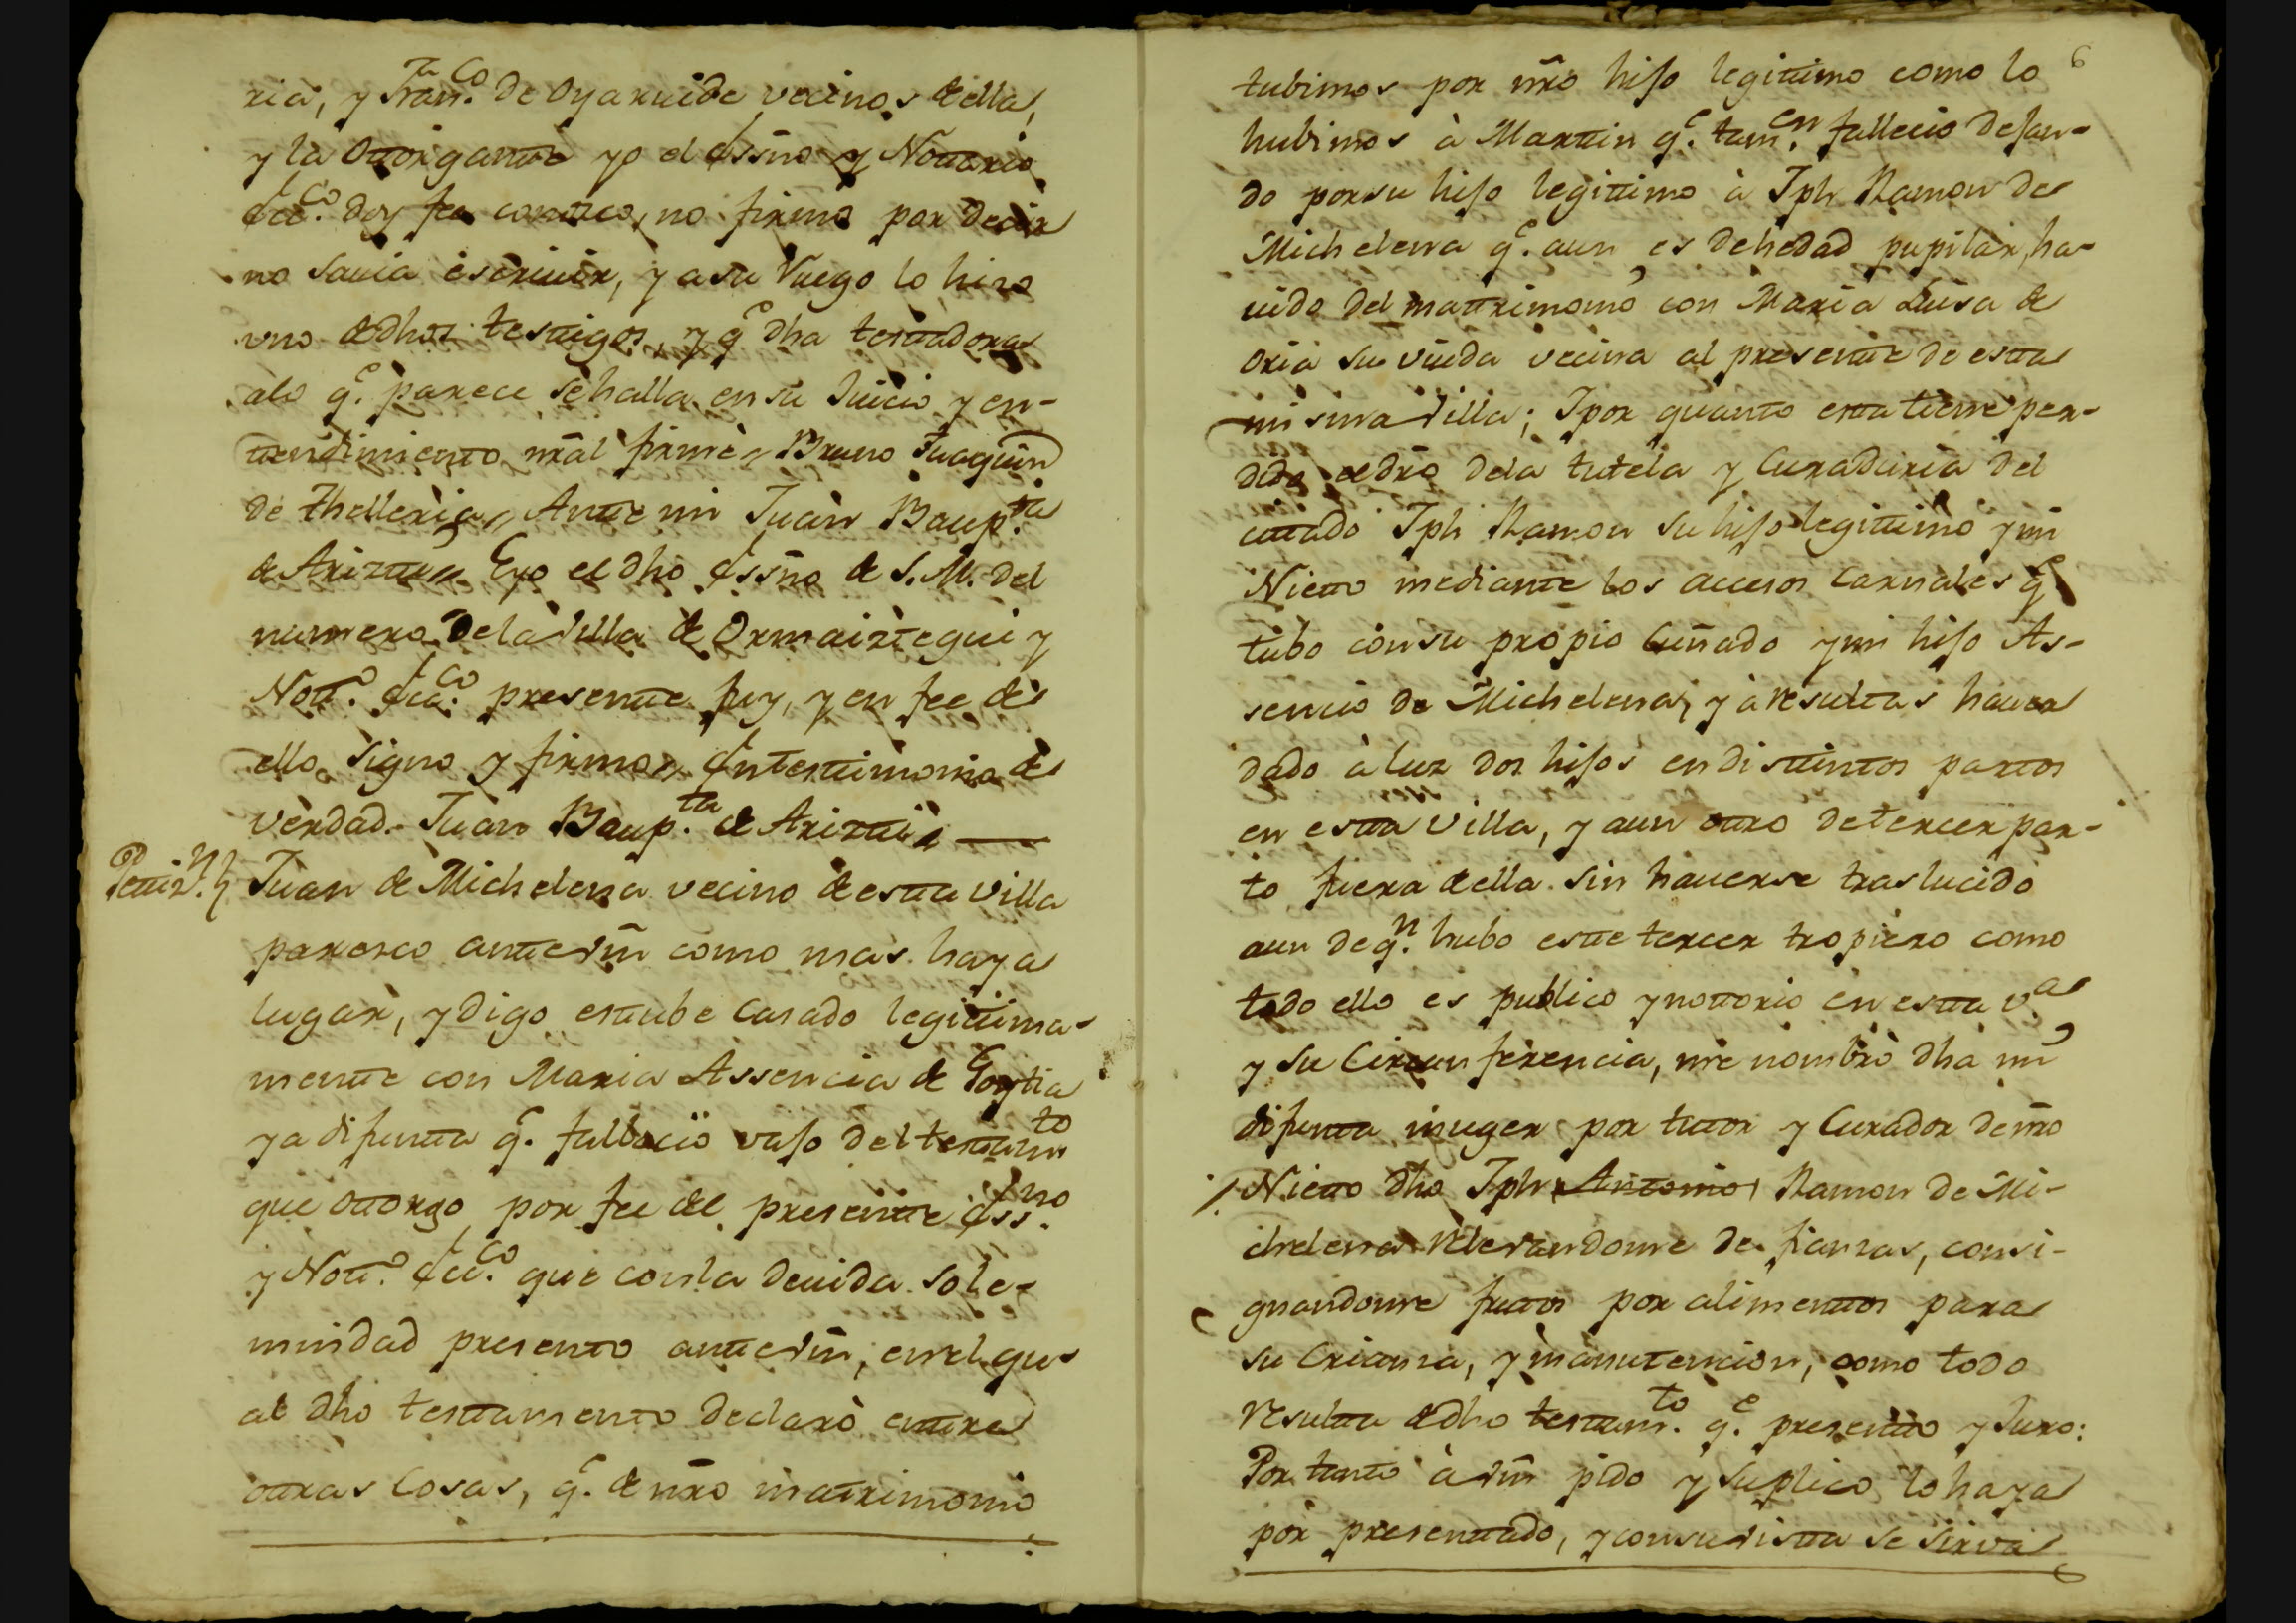 ria, y Fran.co de Oyaruide vecinos de ella,
y la Otorgante yo el Essno y Notario
Ecc.co doy fee conozco, no firmo por decir
no savia escriuir, y a su Ruego lo hizo
uno de dhos testigos, y q.e dha testadora
alo q.e parece se halla en su Juicio y en-
tendimiento nral firmè Bruno Juaquin
de Thelleria, Ante mi Juan Baup.ta
de Ariztui Eyo el dho Essno de S. M. del
numero de la Villa de Ormaiztegui y
Nott.o Ecc.co presente fuy, y en fee de
ello signo y firmo En testimonio de
verdad. Juan Baup.ta de Ariztui
Petiz.n
Juan de Michelena vecino de esta Villa
paresco ante Vm como mas haya
lugar, y digo estube Casado legitima-
mente con Maria Assencia de
ya difunta q.e fallecio vajo del testam.to
que otorgo por fee del presente Ess.no
y Nott.o Ecc.co que con la deuida sole-
mnidad presento ante Vm, en el qu-
al dho testamento declarò entre
otras Cosas, q.e de nro matrimonio
6
tubimos por nro hijo legitimo como lo
hubimos à Martin q.e tam.en fallecio dejan-
do por su hijo legitimo à Jph Ramon de
Michelena q.e aun es de hedad pupilar, ha-
uido del matrimonio con Maria Luisa de
Oria su viuda vecina al presente de esta
misma Villa; Ipor quanto esta tiene per-
dido el dro de la tutela y Curaduria del
citado Jph Ramon su hijo legitimo y mi
Nieto mediante los accesos carnales q.e
tubo con su propio Cuñado y mi hijo As-
sencio de Michelena, y à resultas hauer
dado à luz dos hijos en distintos partos
en esta Villa, y aun otro de tercer par-
to fuera de ella sin hauerse traslucido
aun de q.n hubo este tercer tropiezo como
todo ello es publico y nottorio en esta v.a
y su Circunferencia, me nombrò dha mi
difunta muger por tutor y Curador de nro
Nieto dho Jph Antonio Ramon de Mi-
chelena relevandome de fianzas, consi-
gnandome frutos por alimentos para
su Crianza, y manutencion, como todo
resulta de dho testam.to q.e presento y Juro:
Por tanto à Vm pido y suplico lo haya
por presentado, y con su vista se sirva